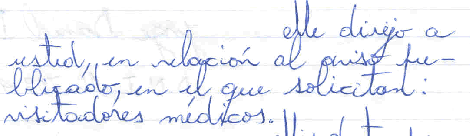 Me dirijo a
usted, en relación al aviso pu-
blicado, en el que solicitan:
visitadores médicos.